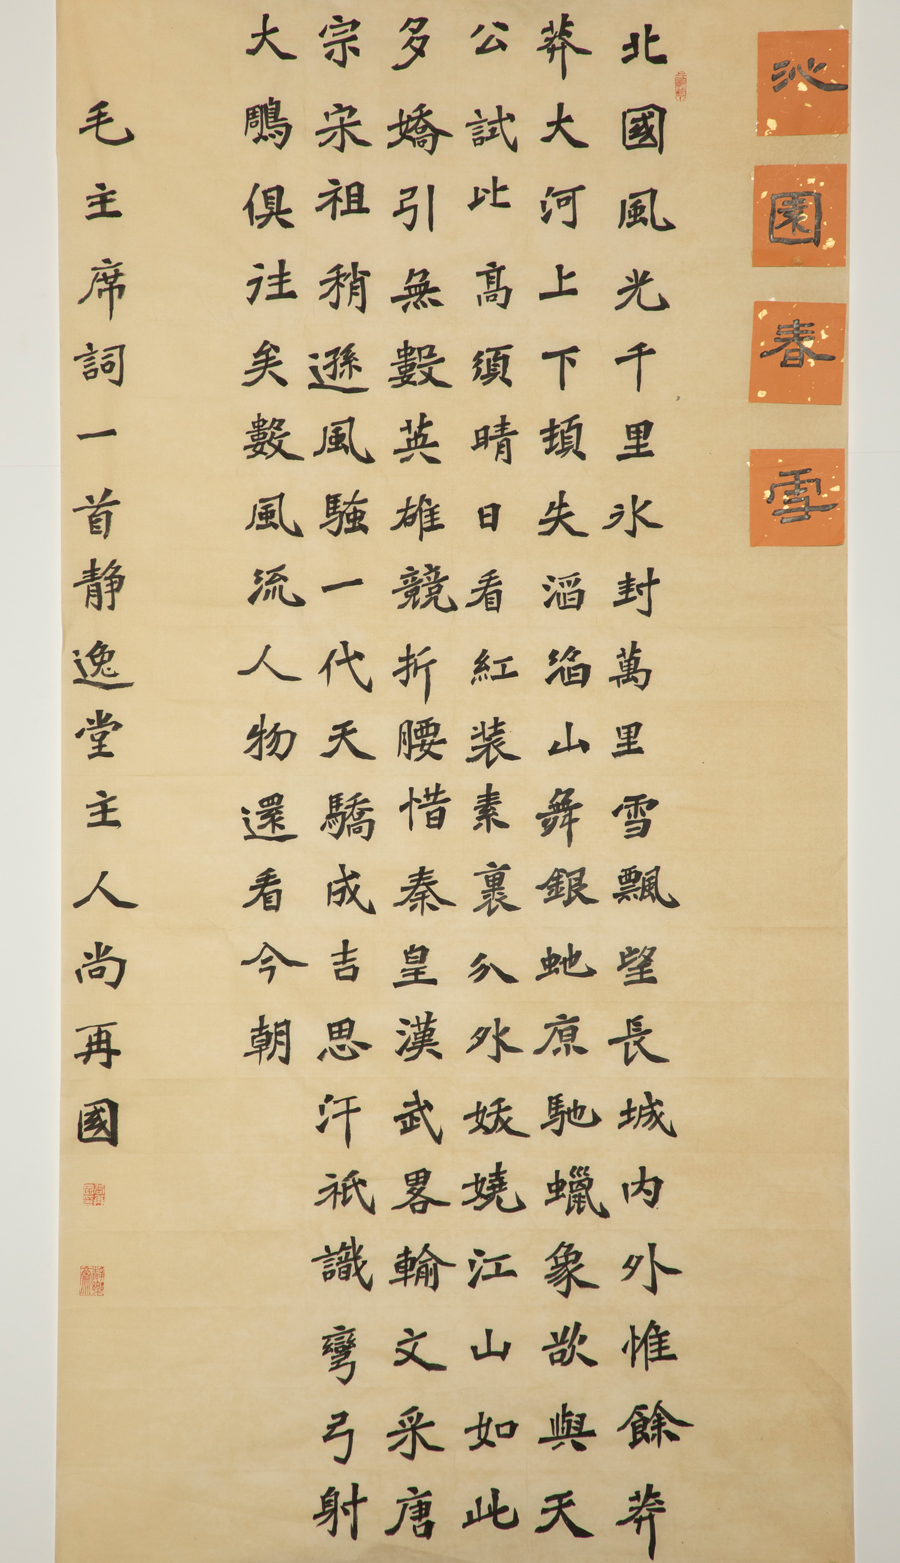 沁園春雪
北國風光千里氷封萬里雪飄望長城内外惟餘莽
莽大河上下頓失滔滔山舞銀虵原馳蠟象欲與天
公試比高須晴日看紅装素裹分外妖嬈江山如此
多嬌引無數英雄競折腰惜秦皇漢武畧輸文采唐
宗宋祖稍遜風騷一代天驕成吉思汗祇識彎弓射
大鵰俱往矣數風流人物還看今朝
毛主席詞一首静逸堂主人尚再國